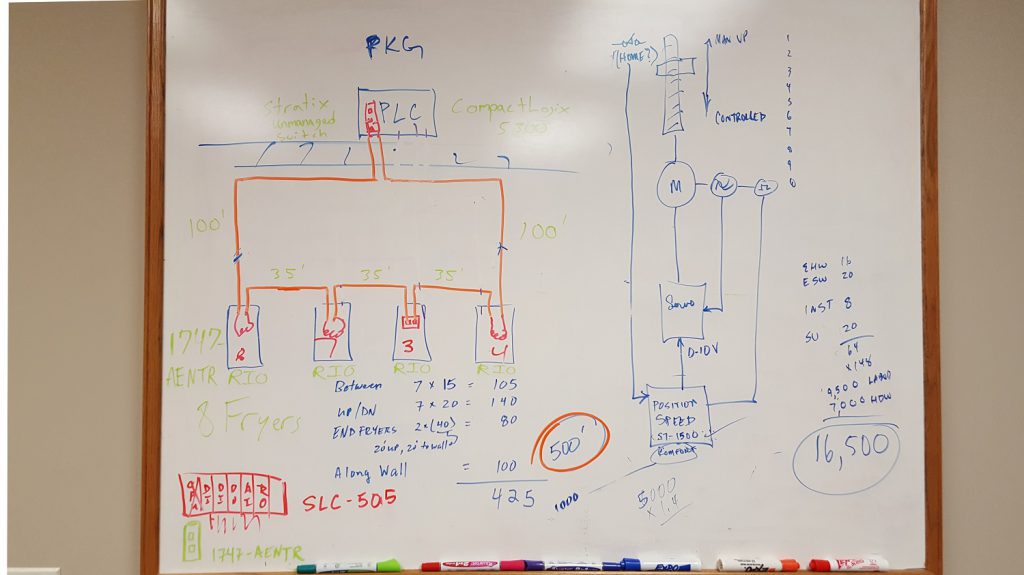 PKG
Stratix
unmanaged
switch
PLC
CompactLogix
100'
100'
35'
35'
35'
3
4
1747-
AENTR
RIO
RIO
RIO
RIO
8 Fryers
Between 7 x 15 = 105
UP/DN 7 x 20 = 140
END FRYERS 2x(40) = 80
20'up, 20' to wall
Along Wall = 100
425
500'
SLC-505
1747-AENTR
(HOME?)
MAN UP
CONTROLLED
1
2
3
4
5
6
7
8
9
M
Servo
0-10V
POSITION
SPEED
S7-1500
1000
5000
x 1.4
EHW 16
ESW 20
INST 8
SU 20
64
x 148
9,500 LABOR
7,000 HDW
16,500
EXPO